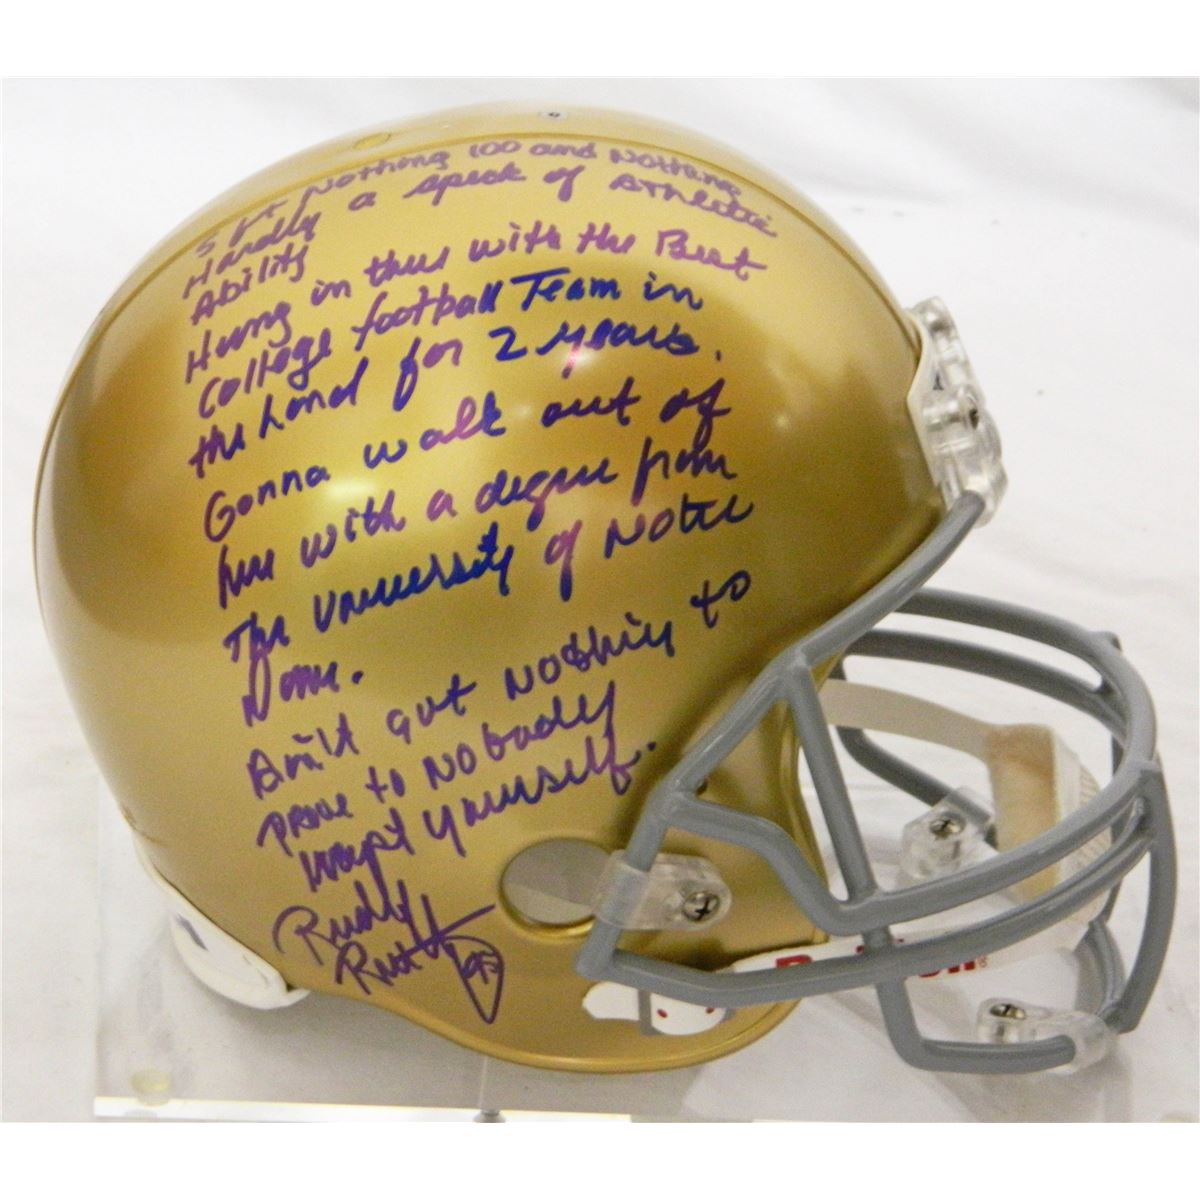 5 Ft Nothing 100 and Nothing
Hardly a speck of Athletic
Ability
Hung in there with the Best
College football Team in
the Land for 2 years.
Gonna walk out of
here with a degree from
The University of Notre
Dame.
Ain't got Nothing to
prove to Nobody
except yourself.
Rudy
Ruettiger